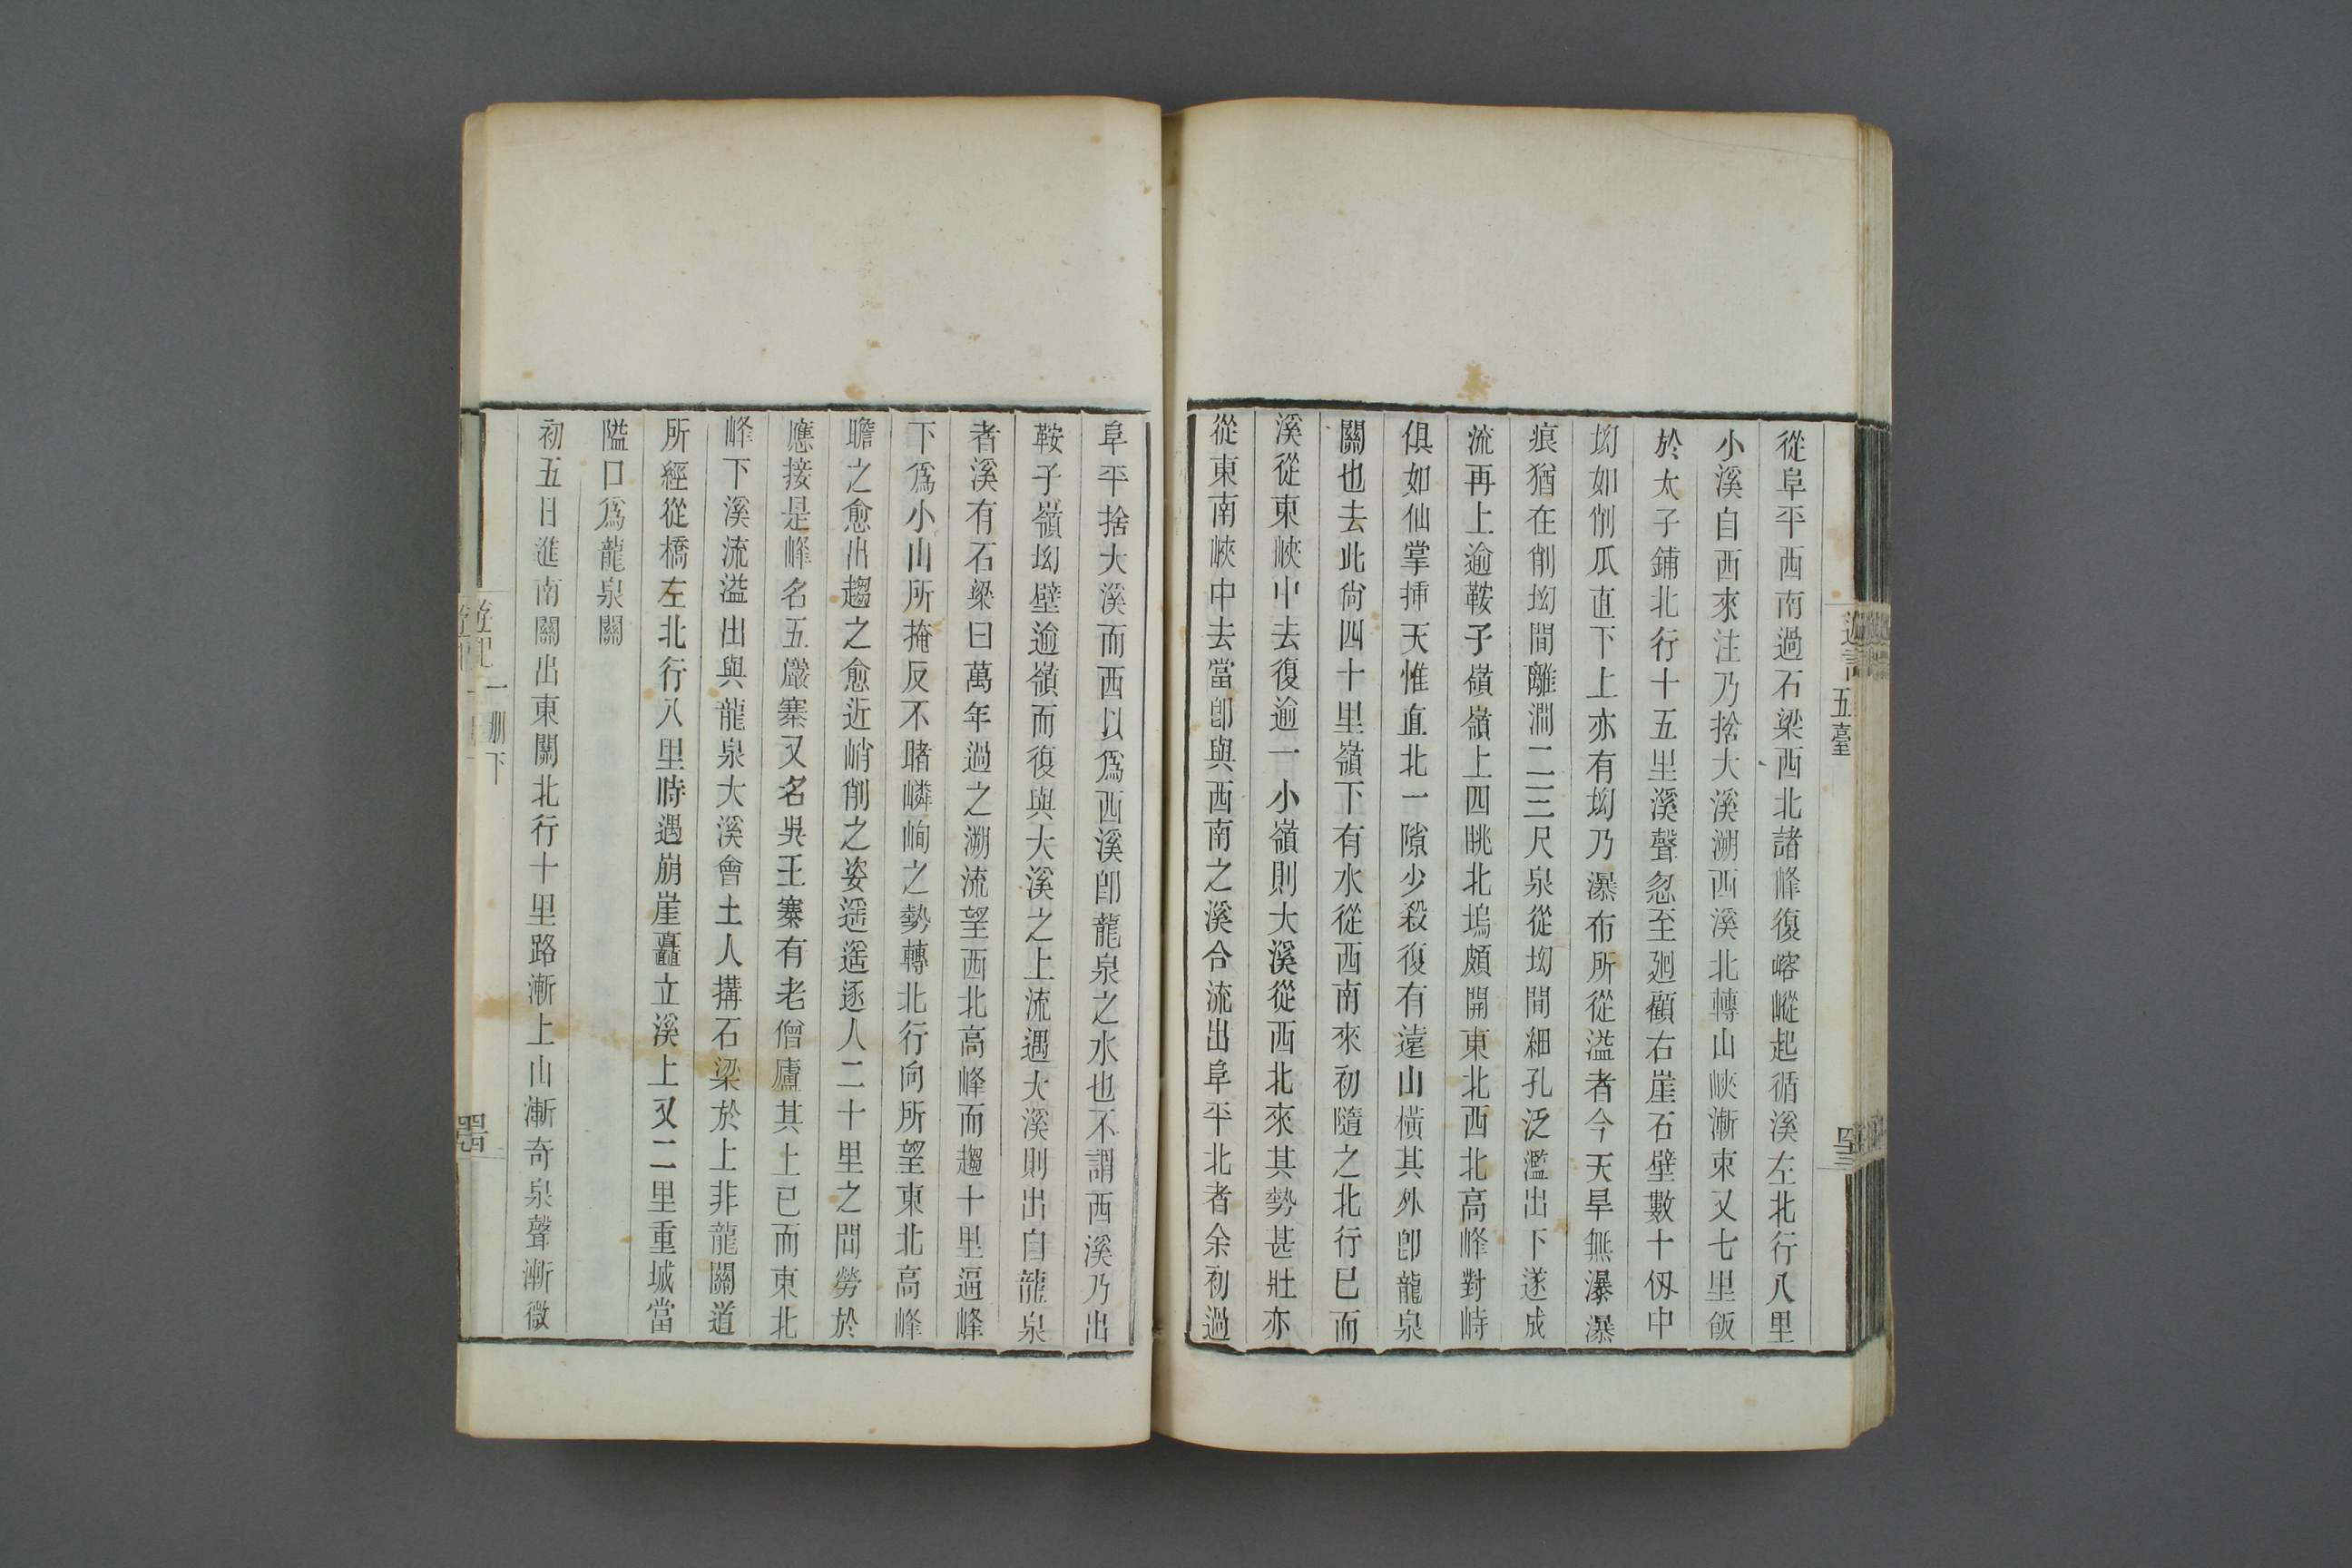 遊記
五臺
四三
從阜平西南過石梁西北諸峰復嵱嵷起循溪左北行八里
小溪自西來注乃捨大溪溯西溪北轉山峽漸束又七里飯
於太子鋪北行十五里溪聲忽至廻顧右崖石壁數十仭中
坳如削瓜直下上亦有坳乃瀑布所從溢者今天旱無瀑瀑
痕猶在削坳間離澗二三尺泉從坳間細孔泛濫出下遂成
流再上逾鞍子嶺嶺上四眺北塢頗開東北西北高峰對峙
俱如仙掌揷天惟直北一隙少殺復有遠山橫其外卽龍泉
關也去此尙四十里嶺下有水從西南來初隨之北行已而
溪從東峽中去復逾一小嶺則大溪從西北來其勢甚壯亦
從東南峽中去當卽與西南之溪合流出阜平北者余初過
阜平捨大溪而西以爲西溪卽龍泉之水也不謂西溪乃出
鞍子嶺坳壁逾嶺而復與大溪之上流遇大溪則出自龍泉
者溪有石梁曰萬年過之溯流望西北高峰而趨十里逼峰
下爲小山所掩反不睹嶙峋之勢轉北行向所望東北高峰
瞻之愈出趨之愈近峭削之姿遥遥逐人二十里之間勞於
應接是峰名五巖寨又名吳王寨有老僧廬其上已而東北
峰下溪流溢出與龍泉大溪會土人搆石梁於上非龍關道
所經從橋左北行八里時遇崩崖矗立溪上又二里重城當
隘口爲龍泉關
初五日進南關出東關北行十里路漸上山漸奇泉聲漸微
遊記
一册下
四四